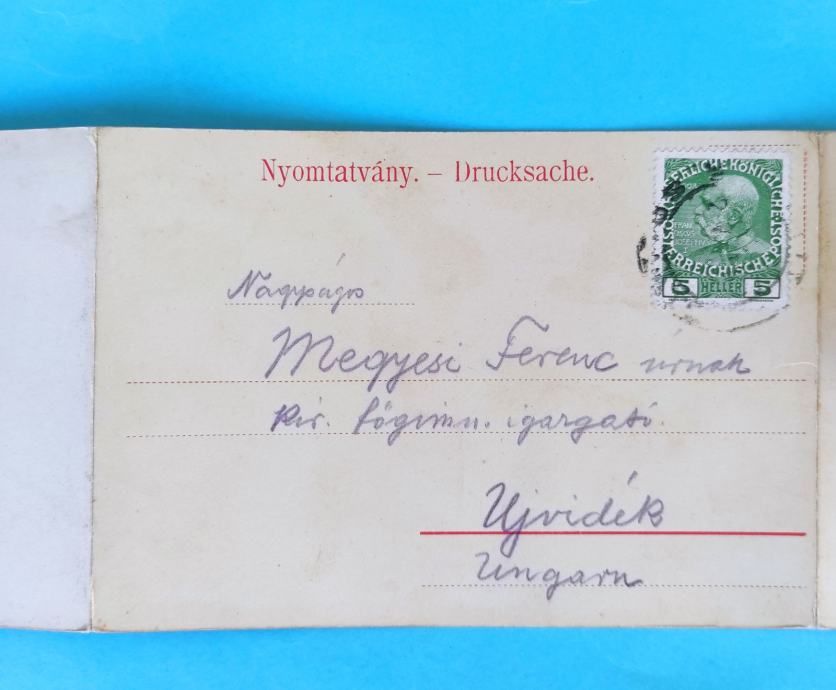 Nyomtatvány. – Drucksache.
KAISERLICHE KÖNIGLICHE ÖSTERREICHISCHE POST
FRAN
JOSEPH
5 HELLER 5
Nagyságos
Megyesi Ferenc urnak
Kir. főgimn. igazgató
Ujvidék
Ungarn